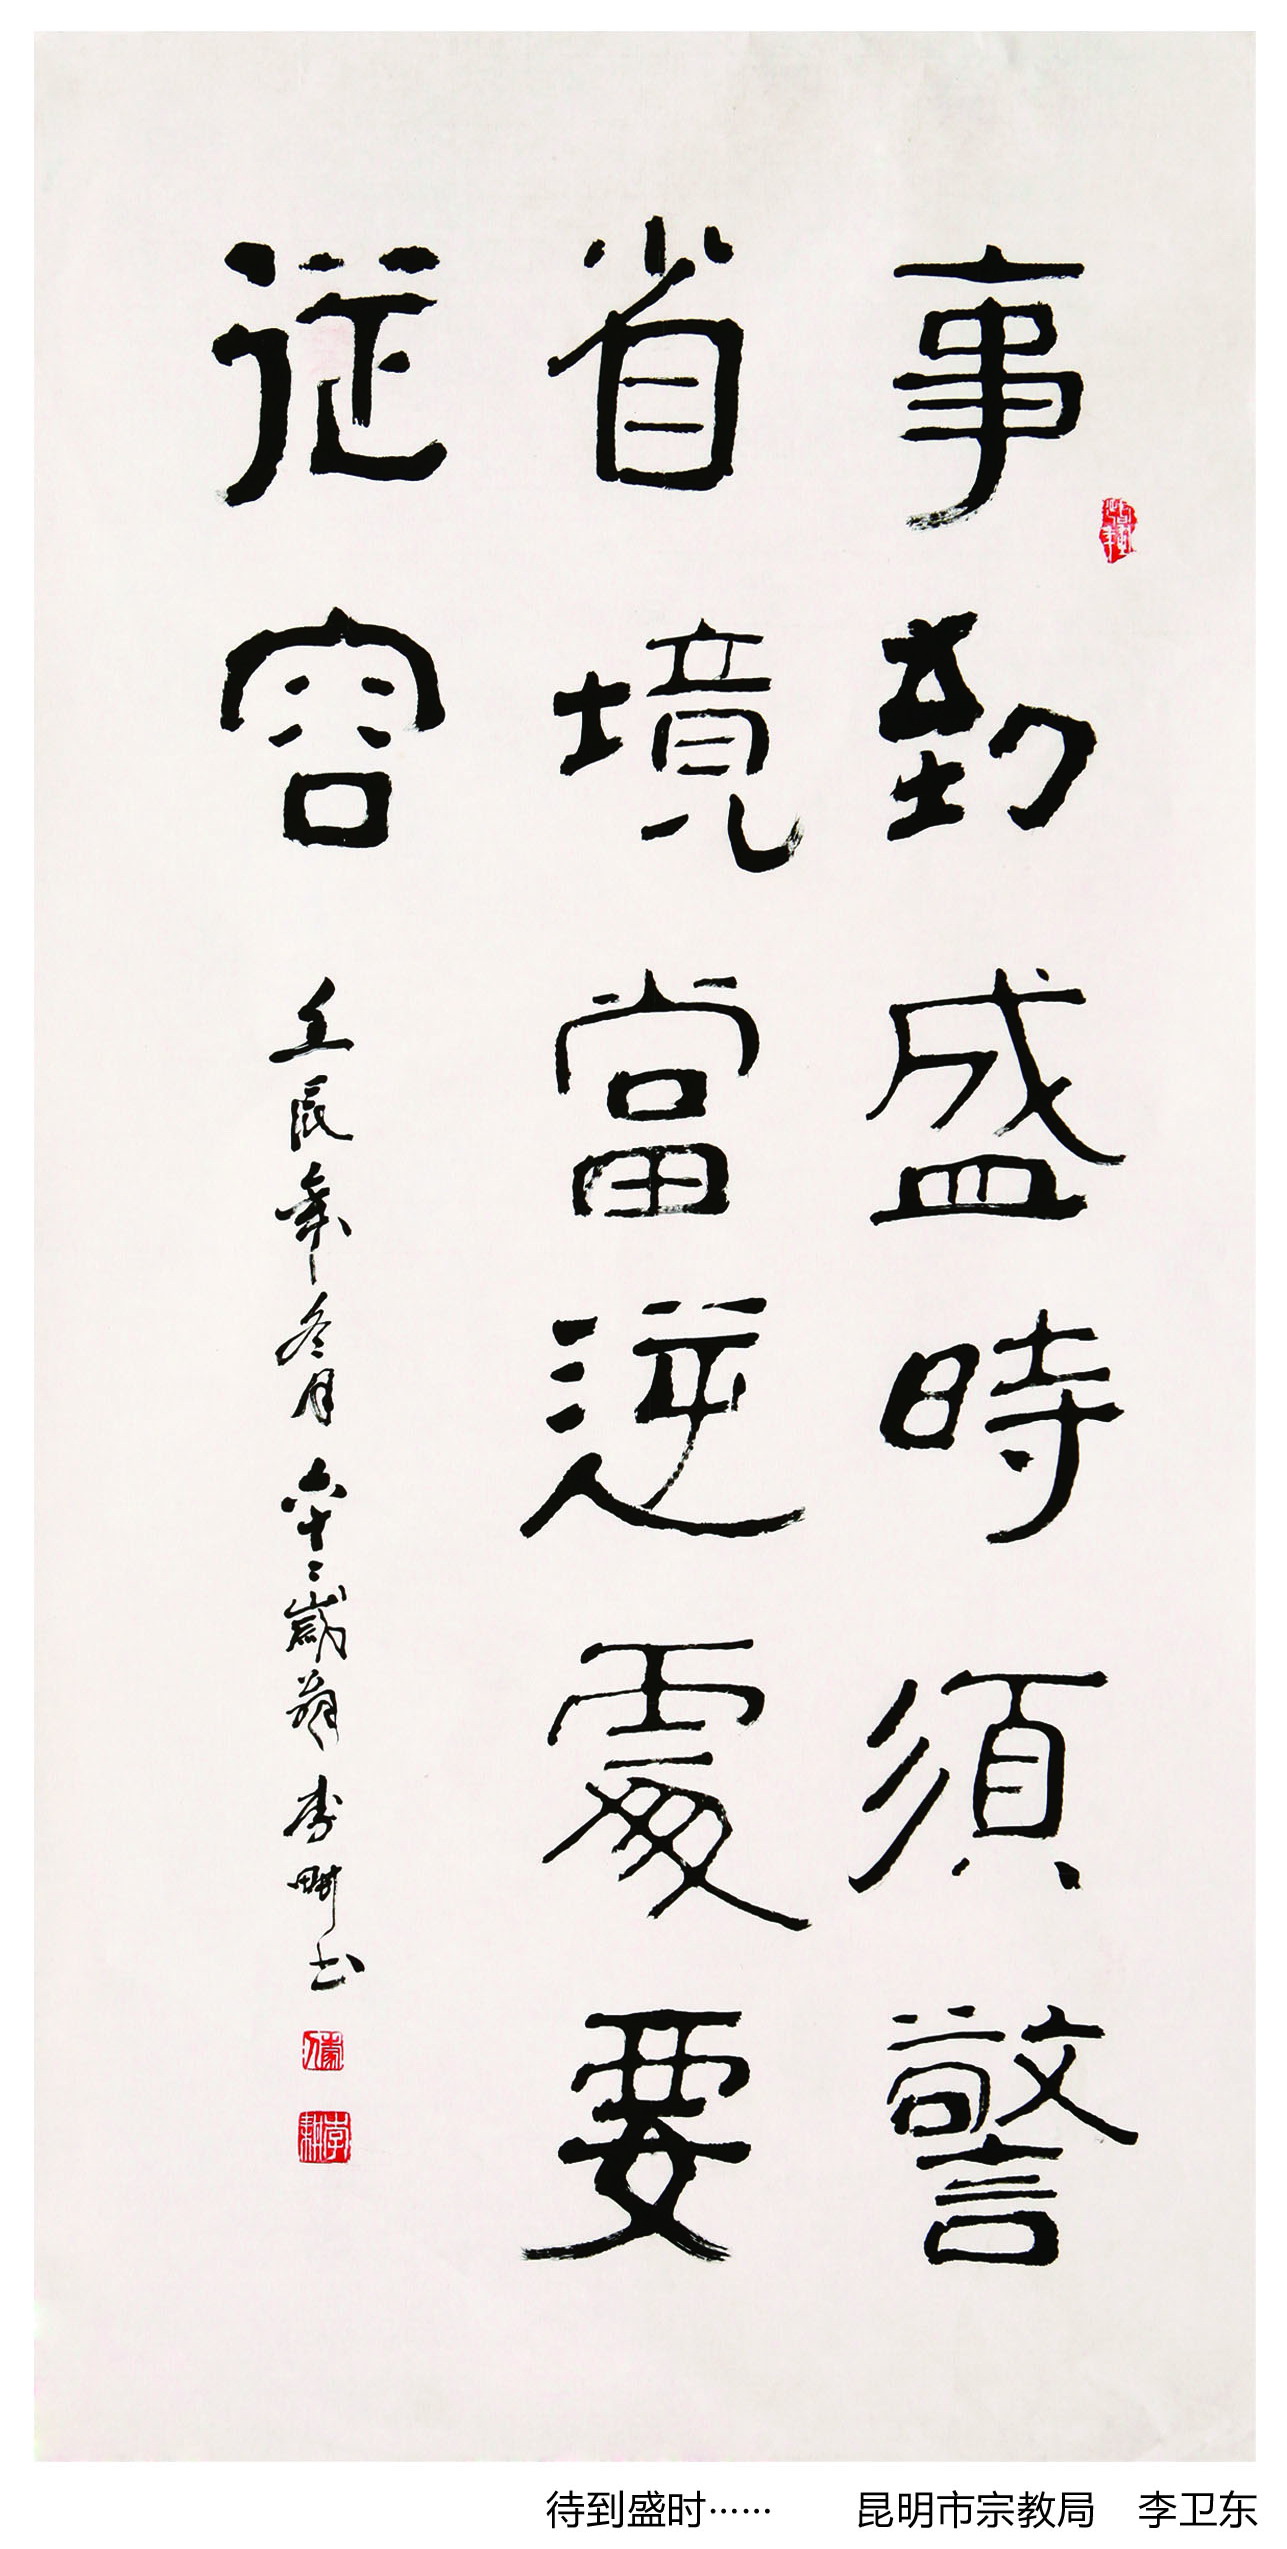 事到盛時須警
省境當逆處要
從容
壬辰年冬月六十二歲翁李畊书
待到盛时…… 昆明市宗教局 李卫东